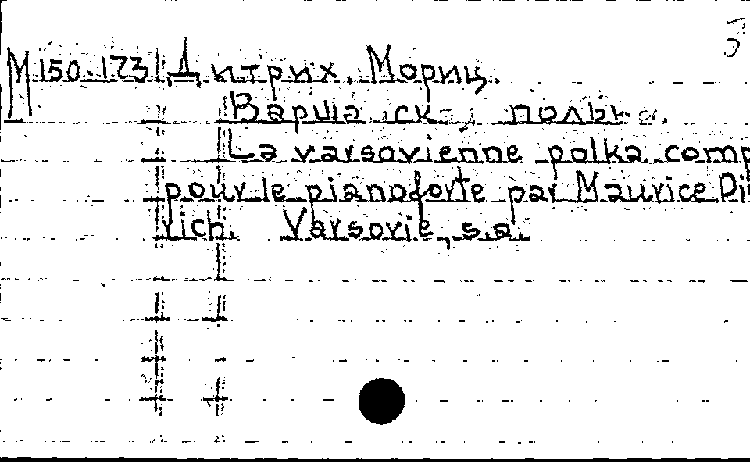 3
М 150.173 Дитрих, Мориц.
польк
La varsovienne polka comp
pour le pianoforte par Maurice Di
rich. Varsovie, s.a.